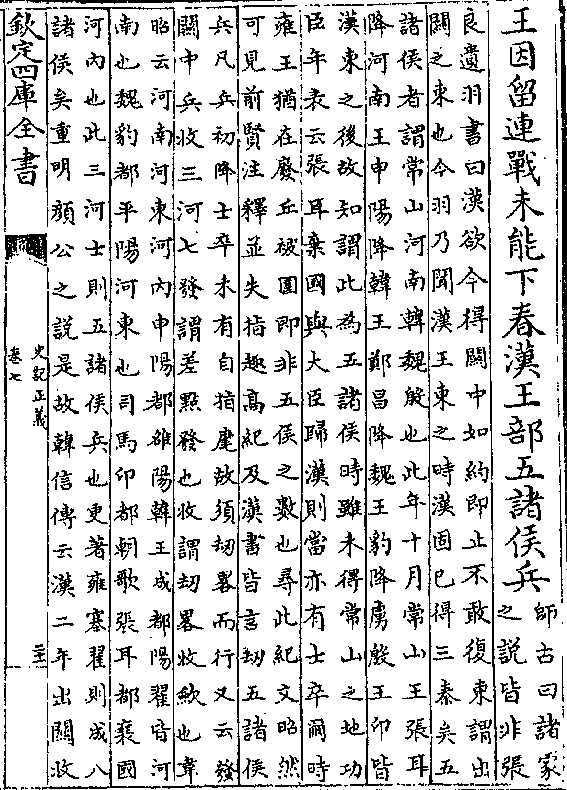 王因留連戰未能下春漢王部五諸侯兵
師古曰諸家
之說皆非張
良遺羽書曰漢欲今得關中如約即止不敢復東謂出
關之東也今羽乃聞漢王東之時漢固已得三秦矣五
諸侯者謂常山河南韓魏殷也此年十月常山王張耳
降河南王申陽降韓王鄭昌降魏王豹降虜殷王卬皆
漢東之後故知謂此為五諸侯時雖未得常山之地功
臣年表云張耳棄國與大臣歸漢則當亦有士卒爾時
雍王猶在廢丘被圍即非五侯之數也尋此紀文昭然
可見前賢注釋並失指趣高紀及漢書皆言劫五諸侯
兵凡兵初降士卒未有自指麾故須劫畧而行又云發
關中兵收三河七發謂差點發也收謂劫畧收歛也韋
昭云河南河東河內申陽都雒陽韓王成都陽翟皆河
南也魏豹都平陽河東也司馬卬都朝歌張耳都襄國
河內也此三河士則五諸侯兵也更著雍塞翟則成八
諸侯矣重明顏公之說是故韓信傳云漢二年出關收
欽定四庫全書
史記正義
卷七